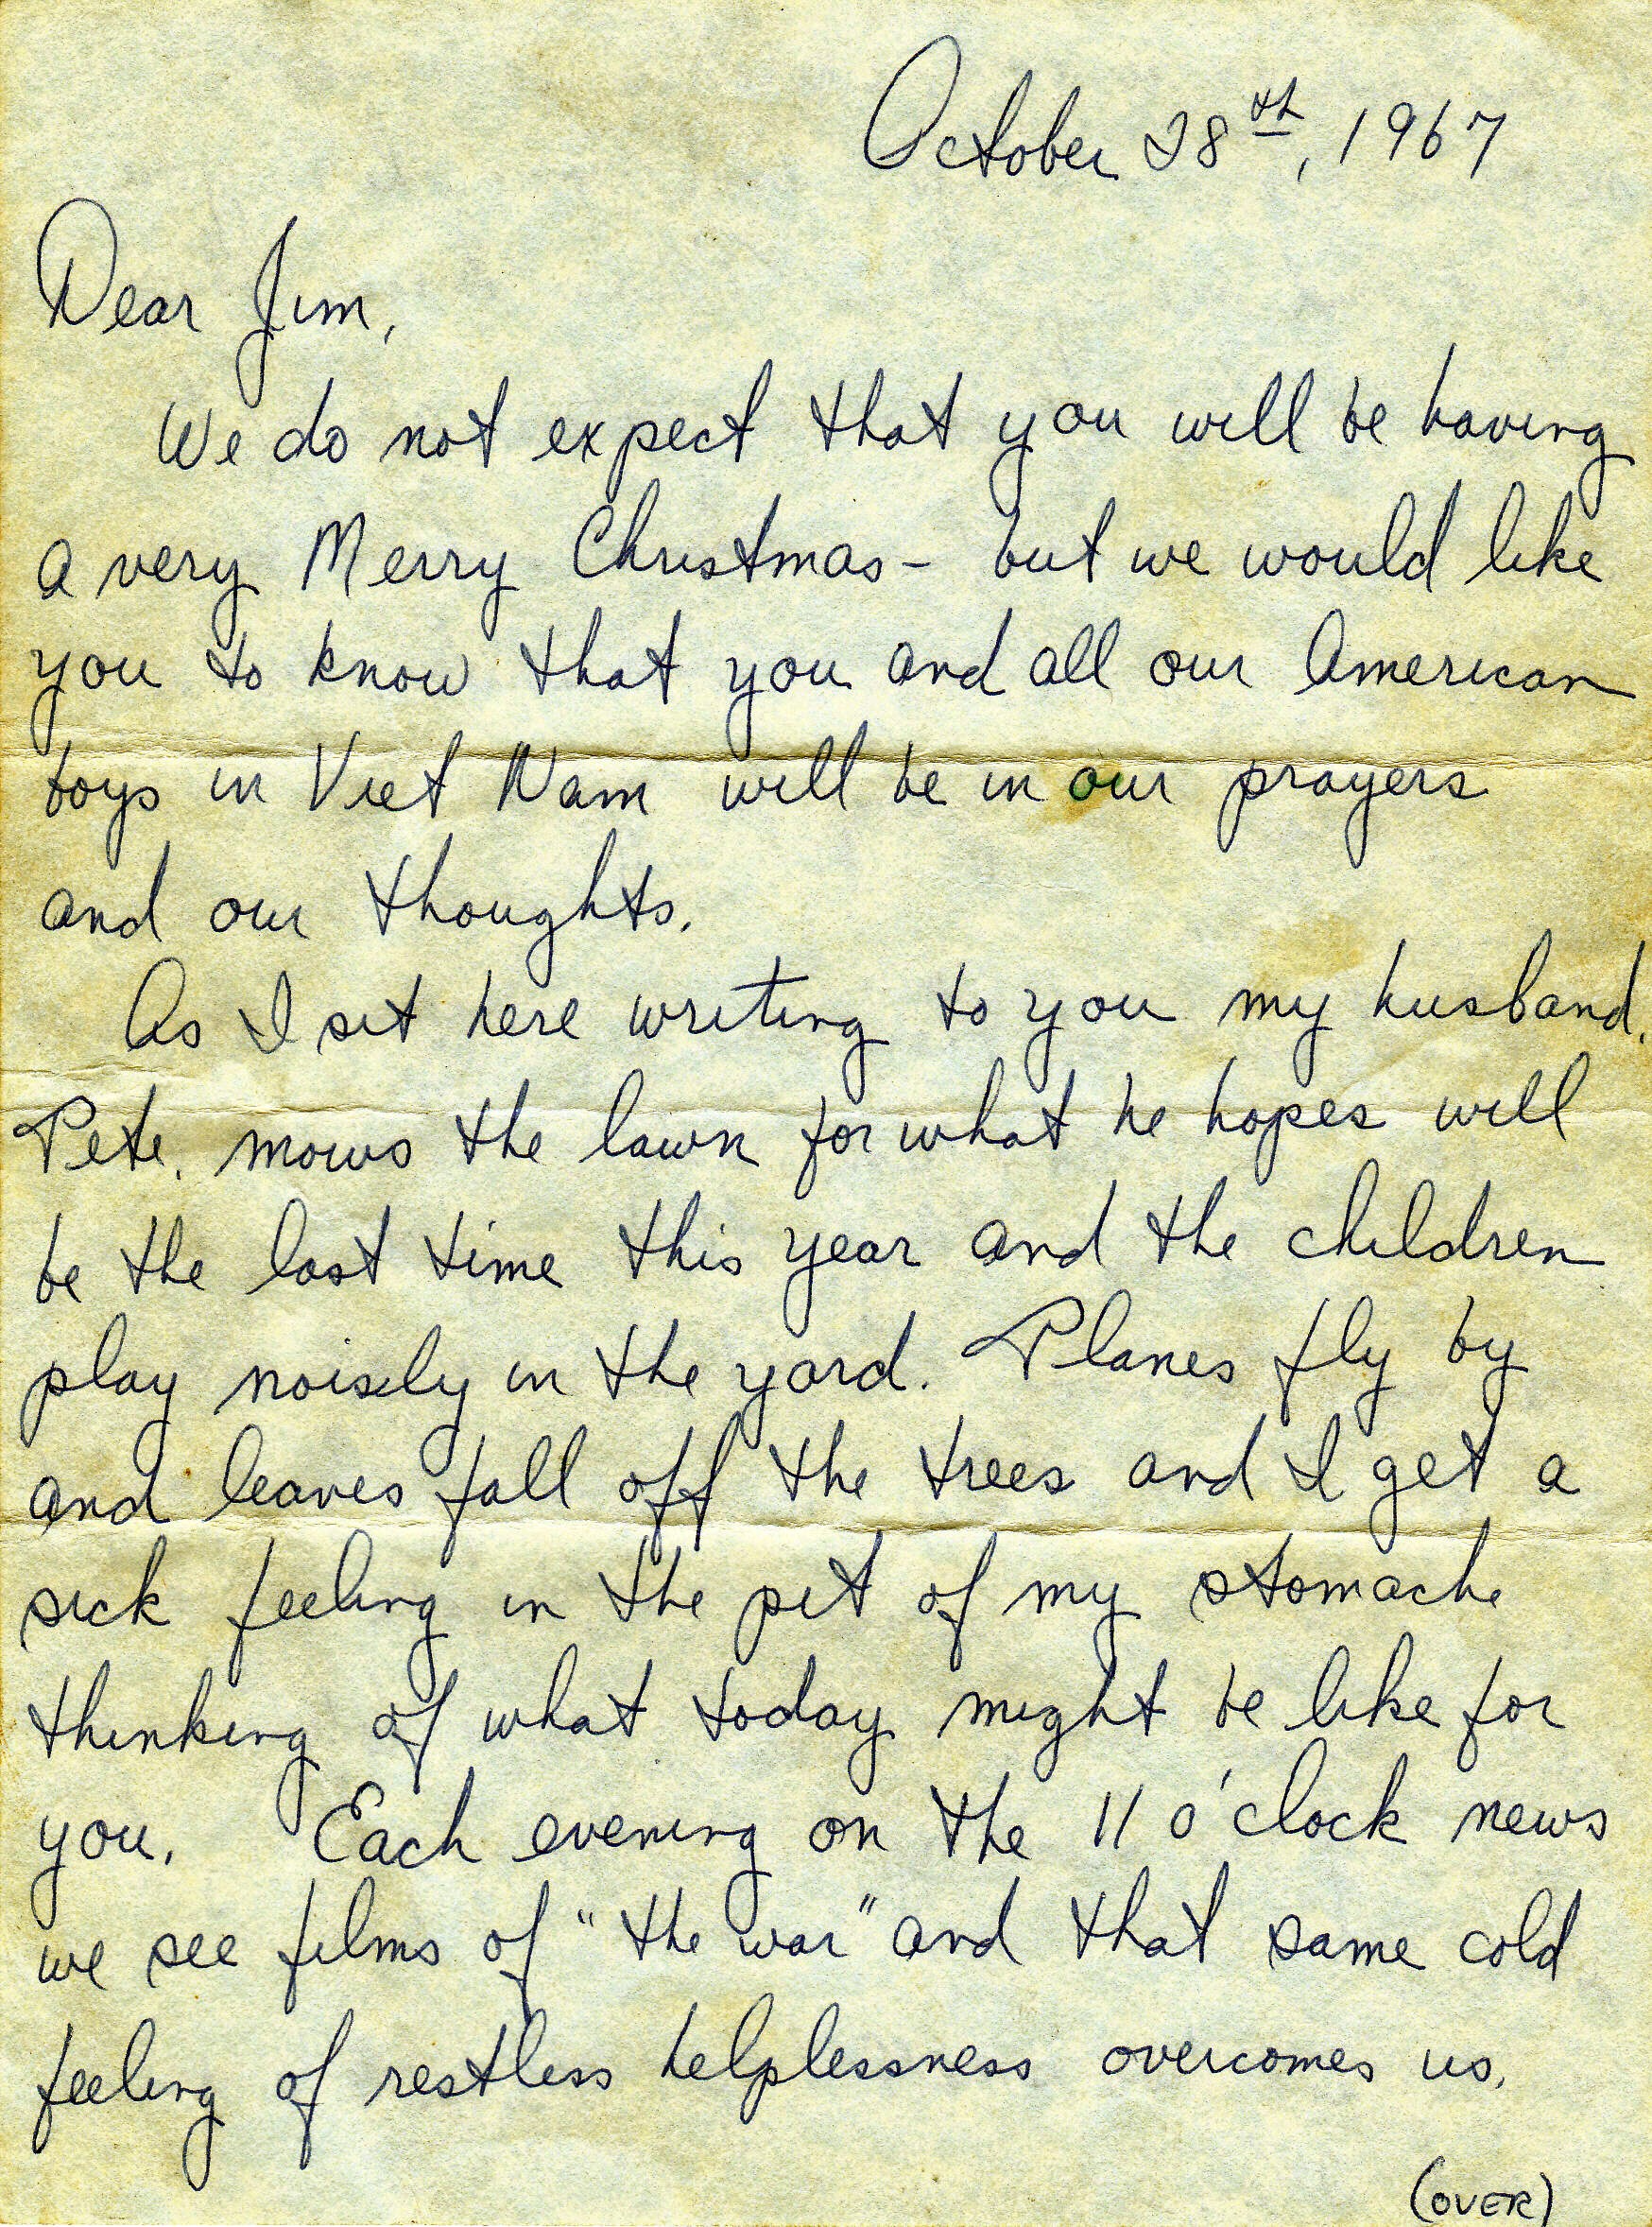 October 28th, 1967
Dear Jim,
We do not expect that you will be having
a very Merry Christmas - but we would like
you to know that you and all our American
boys in Viet Nam will be in our prayers
and our thoughts.
As I sit here writing to you my husband,
Pete, mows the lawn for what he hopes will
be the last time this year and the children
play noisely in the yard. Planes fly by
and leaves fall off the trees and I get a
sick feeling in the pit of my stomache
thinking of what today might be like for
you. Each evening on the 11 o'clock news
we see films of "the war" and that same cold
feeling of restless helplessness overcomes us.
(OVER)